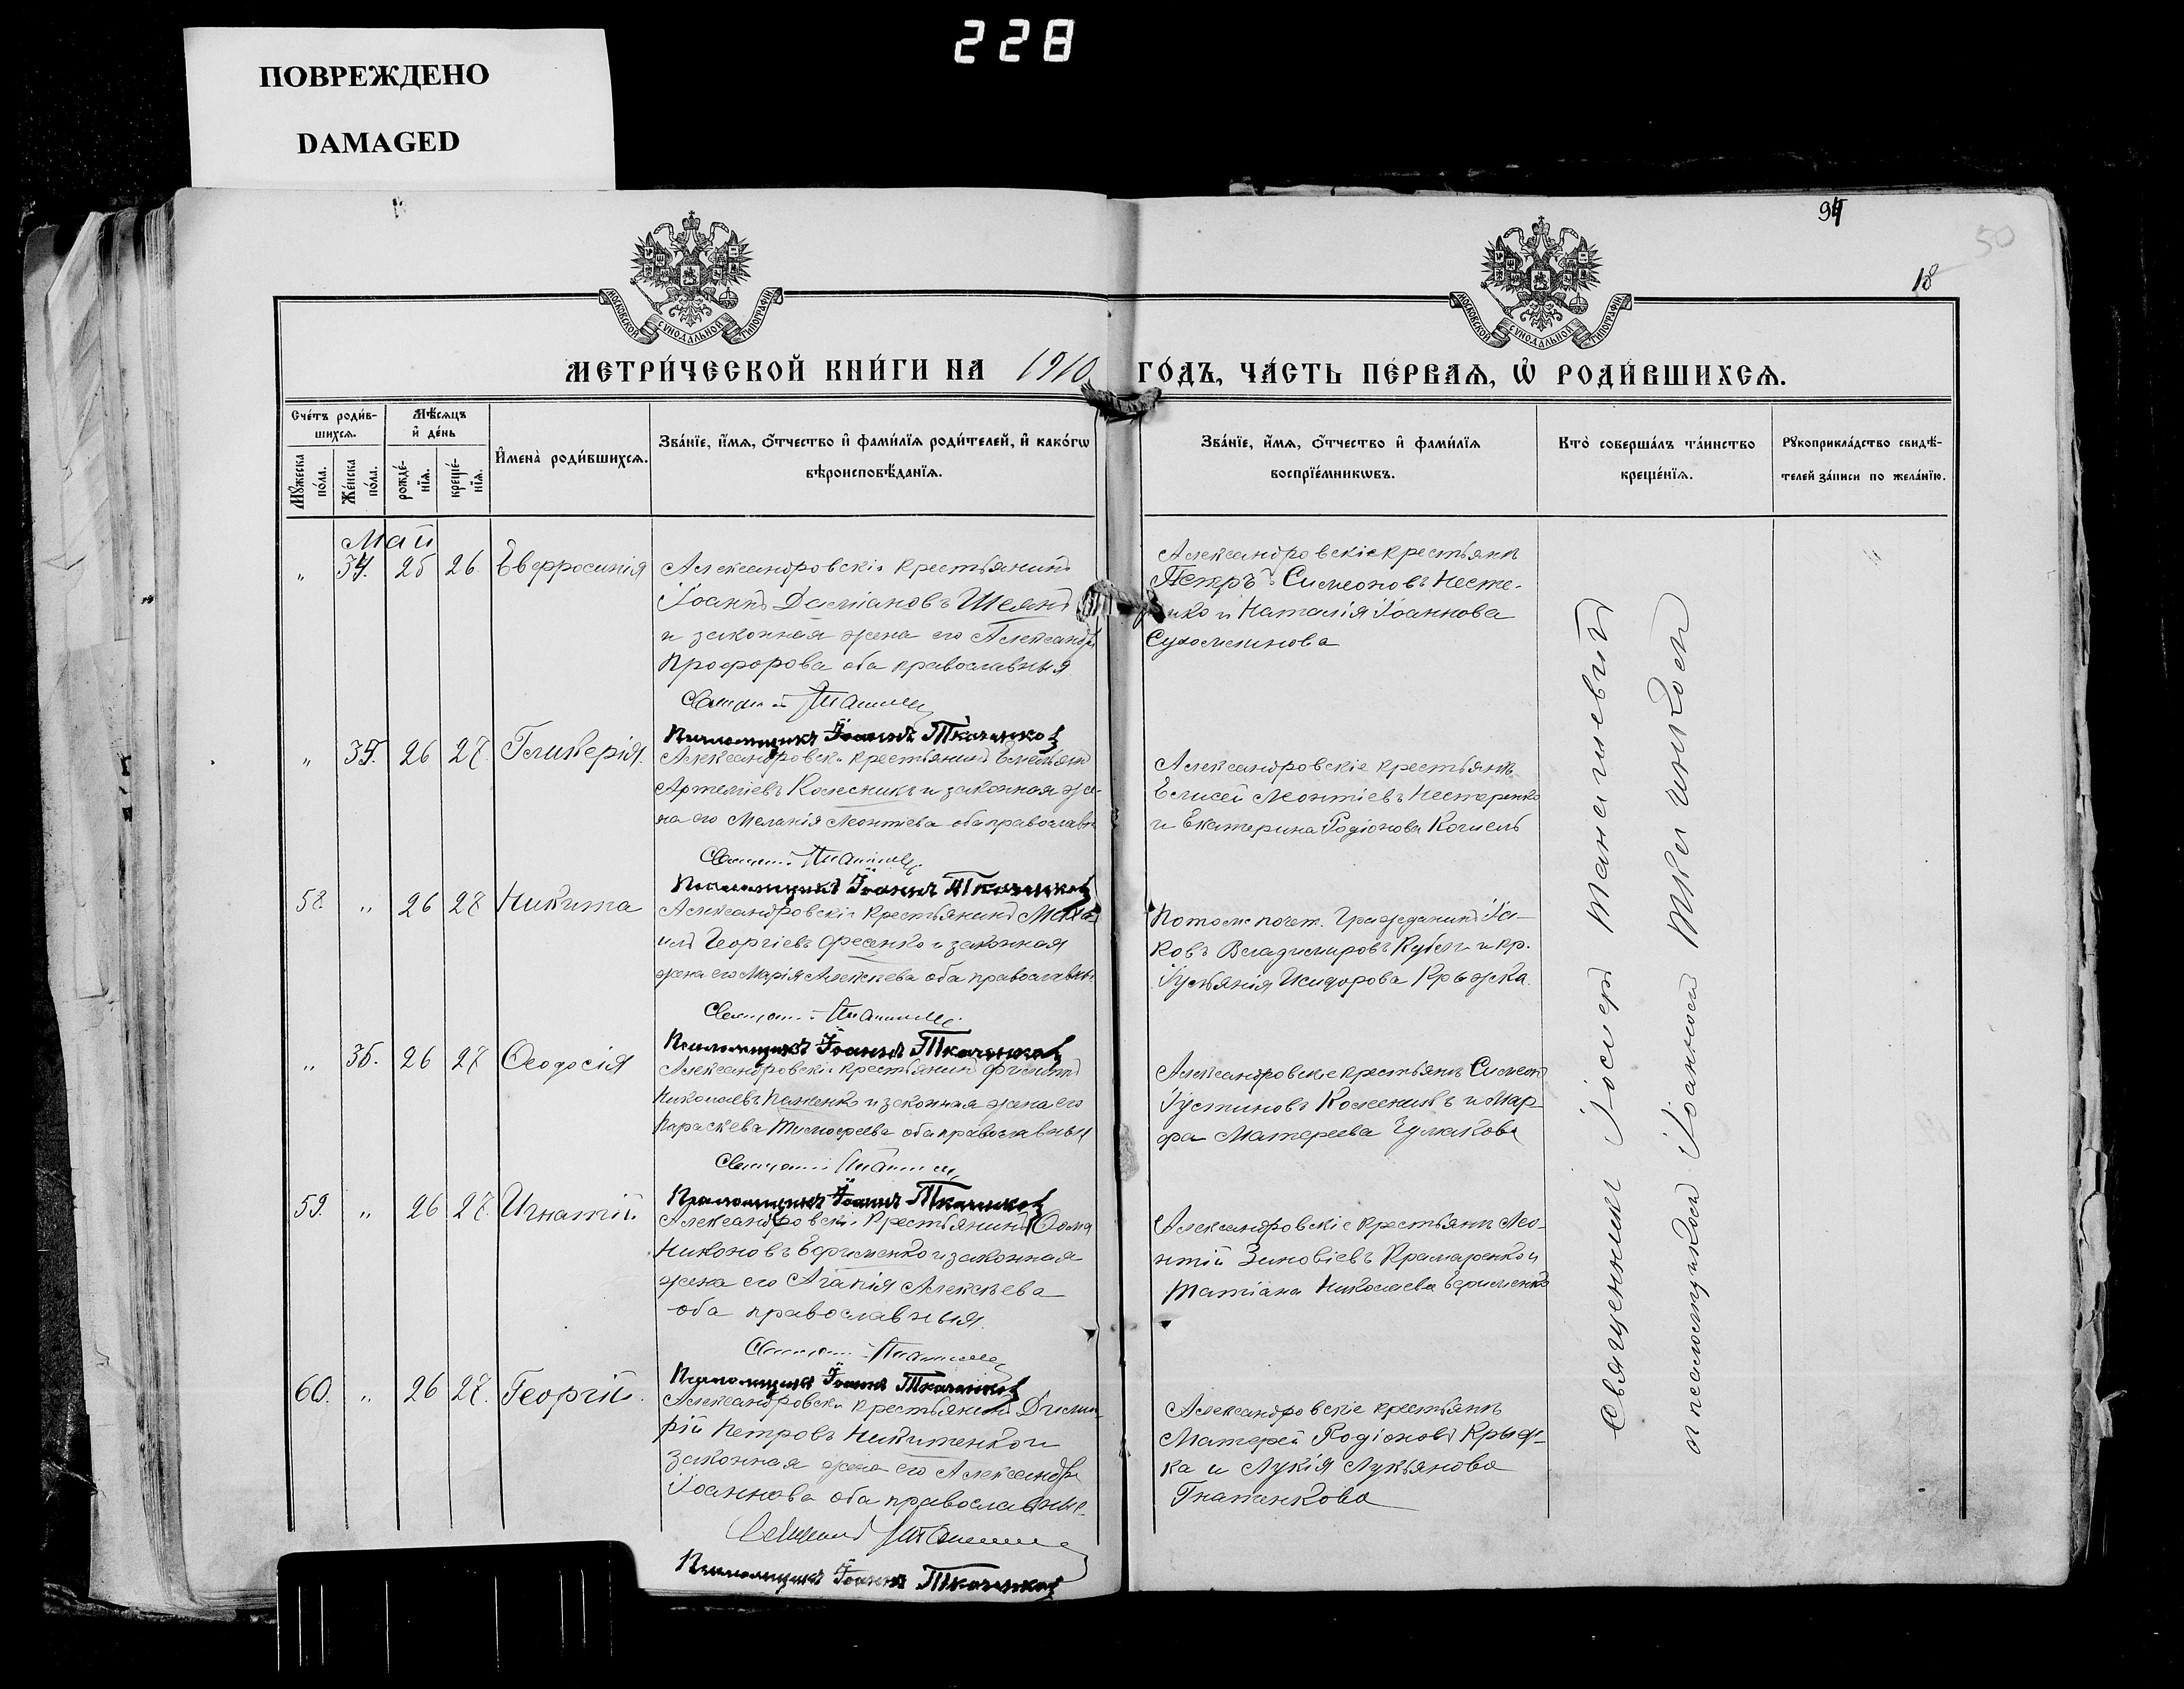 228
ПОВРЕЖДЕНО
DAMAGED
94
50
18
МОСКОВСКОЙ СУНОДАЛЬНОЙ ТИПОГРАФІИ
МОСКОВСКОЙ СУНОДАЛЬНОЙ ТИПОГРАФІИ
МЕТРИ́ЧЕСКОЙ КНИ́ГИ НА 1910 ГО́ДЪ, ЧА́СТЬ ПЕ́РВАѦ, Ѡ҆ РОДИ́ВШИХСѦ.
Сче́тъ роди́в-
шихсѧ.
Мѣ́сѧцъ
и҆ де́нь
Мꙋ́жеска по́ла.
Же́нска по́ла.
рожде́-
нїѧ.
креще́-
нїѧ.
И҆мена̀ роди́вшихсѧ.
Зва́нїе, и҆́мѧ, ѻ҆́тчество и҆ фами́лїѧ роди́телей, и҆ како́гѡ
вѣроисповѣ́данїѧ.
Зва́нїе, и҆́мѧ, ѻ҆́тчество и҆ фами́лїѧ
воспрїе́мникѡвъ.
Кто̀ соверша́лъ та́инство
креще́нїѧ.
Рꙋкоприкла́дство свидѣ́-
телей за́писи по жела́нїю.
Май
" 34. 25 26. Евфросинія
Александровскій крестьянинъ
Іоаннъ Даміановъ Шеянъ
и законная жена его Александра
Прохорова оба православныя
Священ. 
Псаломщикъ Іоаннъ Ткаченко
Александровскіе крестьяне
Петръ Симеоновъ Несте-
ренко и Наталія Іоаннова
Сухомлинова
" 35. 26 27. Гликерія.
Александровскій крестьянинъ Емельянъ
Артеміевъ Колесникъ и законная же-
на его Меланія Леонтіева оба православн.
Священ. 
Псаломщикъ Іоаннъ Ткаченко
Александровскіе крестьяне
Елисей Леонтіевъ Нестеренко
и Екатерина Родіонова
58. " 26 27 Никита
Александровскій крестьянинъ Миха-
илъ Георгіевъ Фесенко и законная
жена его Марія Алексѣева оба православны
Священ. 
Псаломщикъ Іоаннъ Ткаченко
Потом. почет. Гражданинъ Іа-
ковъ Владиміровъ и кр.
Іустинія Исидорова Крыжка.
" 36. 26 27 Ѳеодосія
Александровскій крестьянинъ Филиппъ
Николаевъ и законная жена его
Параскева Тимофеева оба православныя
Священ. 
Псаломщикъ Іоаннъ Ткаченко
Александровскіе крестьяне Симеонъ
Іустиновъ Колесникъ и Мар-
фа Матфеева Чумакова
59. " 26 27. Игнатій
Александровскій крестьянинъ Ѳома
Никоновъ Ефименко и законная
жена его Агапія Алексѣева
оба православныя.
Священ. 
Псаломщикъ Іоаннъ Ткаченко
Александровскіе крестьяне Лео-
нтій Зиновіевъ Крамаренко и
Татіана Николаева Ефименко
60. " 26 27. Георгій.
Александровскій крестьянинъ Дими-
рій Петровъ Никитенко и
законная жена его Александра
Іоаннова оба православные
Священникъ
Псаломщикъ Іоаннъ Ткаченко
Александровскіе крестьяне
Матфей Родіоновъ Крыж-
ка и Лукія Лукьянова
Гнатенкова
Священникъ Іосифъ
и псаломщикъ Іоаннъ Ткаченко